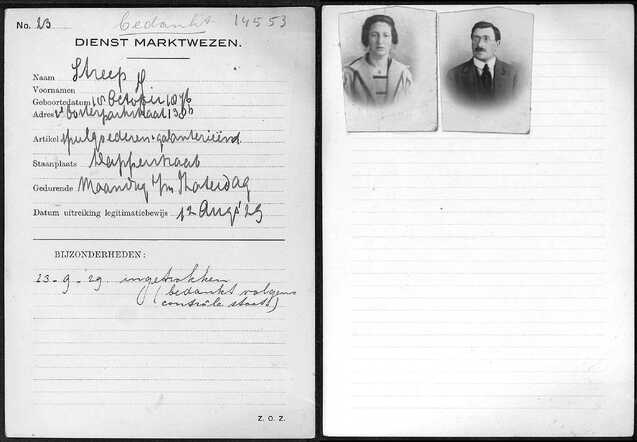 No. 23 Bedankt 14553
DIENST MARKTWEZEN.
Naam Streep
Voornamen H
Geboortedatum 10 October 1876
Adres Oosterparkstraat
Artikel galanterieënd
Staanplaats Dapperstraat
Gedurende Maandag t/m Zaterdag
Datum uitreiking legitimatiebewijs 12 Aug '29
BIJZONDERHEDEN:
23-9-29 ingetrokken
(bedankt volgens
contrôle staat)
Z. O. Z.